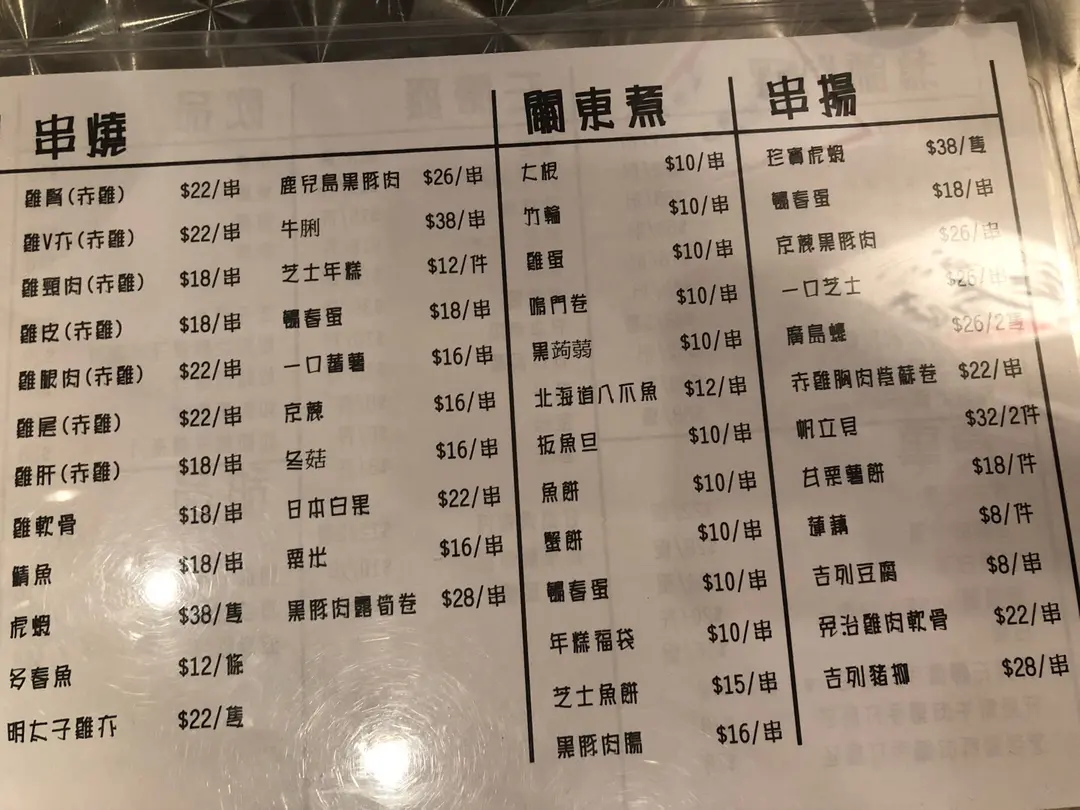 串燒
雞腎(赤雞) $22/串
雞V亦(赤雞) $22/串
雞頸肉(赤雞) $18/串
雞皮(赤雞) $18/串
雞腿肉(赤雞) $22/串
雞尾(赤雞) $22/串
雞肝(赤雞) $18/串
雞軟骨 $18/串
鯖魚 $18/串
虎蝦 $38/隻
多春魚 $12/條
明太子雞亦 $22/隻
鹿兒島黑豚肉 $26/串
牛脷 $38/串
芝士年糕 $12/件
鵪春蛋 $18/串
一口蕃薯 $16/串
京蔥 $16/串
冬菇 $16/串
日本白果 $22/串
粟米 $16/串
黑豚肉露筍卷 $28/串
關東煮
大根 $10/串
竹輪 $10/串
雞蛋 $10/串
鳴門卷 $10/串
黑蒟蒻 $10/串
北海道八爪魚 $12/串
板魚旦 $10/串
魚餅 $10/串
蟹餅 $10/串
鵪春蛋 $10/串
年糕福袋 $10/串
芝士魚餅 $15/串
黑豚肉腸 $16/串
串揚
珍寶虎蝦 $38/隻
鵪春蛋 $18/串
京蔥黑豚肉 $26/串
一口芝士 $26/串
廣島蠔 $26/2隻
赤雞胸肉紫蘇卷 $22/串
帆立貝 $32/2件
甘栗薯餅 $18/件
蓮藕 $8/件
吉列豆腐 $8/串
免治雞肉軟骨 $22/串
吉列豬柳 $28/串